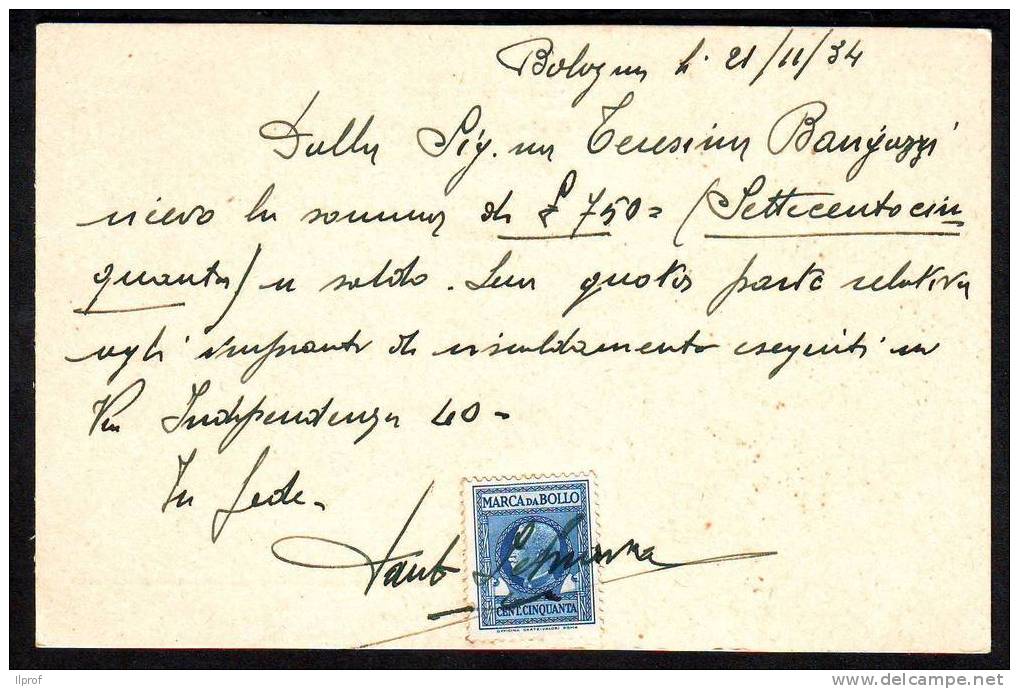 Bologna li 21/11/34
Dalla Sig.na Teresina
ricevo la somma di £ 750= (Settecentocin
quanta) a saldo. Sua quota parte relativa
agli impianti di riscaldamento eseguiti in
Via Indipendenza 40-
In fede-
MARCA DA BOLLO
CENT. CINQUANTA
OFFICINA CARTE-VALORI ROMA
Ilprof
delcampe.net